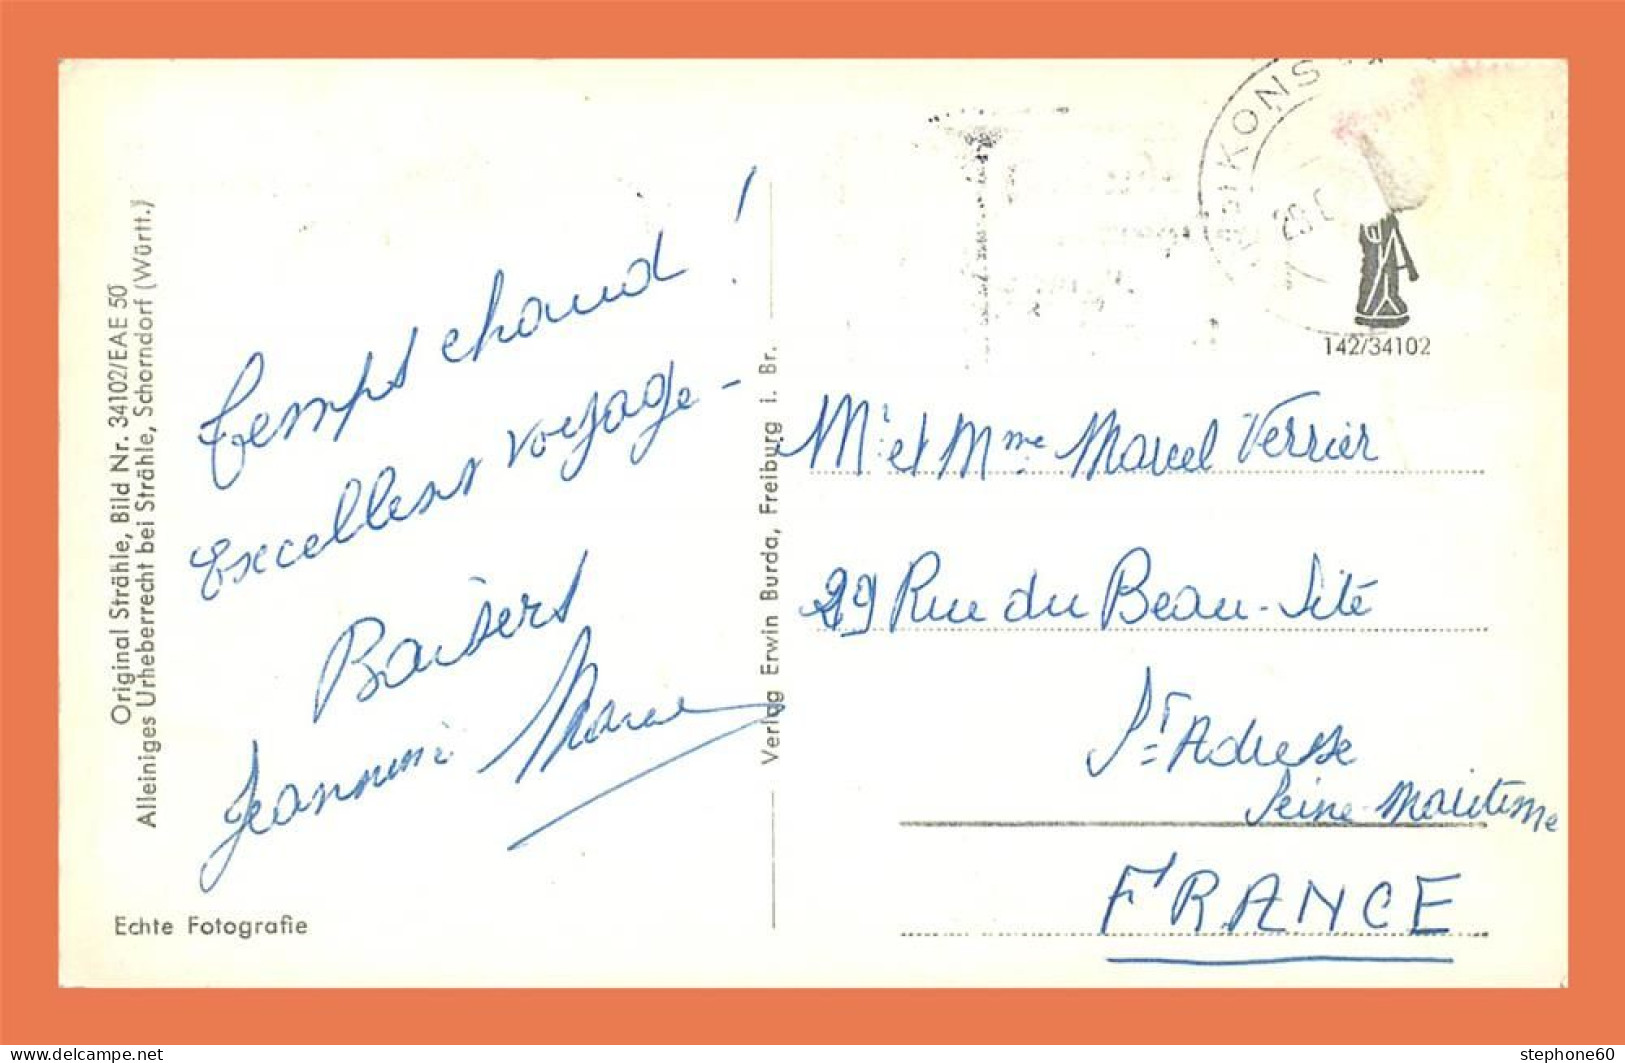 Original Strähle, Bild Nr. 34102/EAE 50
Alleiniges Urheberrecht bei Strähle, Schorndorf (Württ.)
Temps chaud !
Excellent voyage -
Baisers
Jeannine Marcel
Echte Fotografie
Verlag Erwin Burda, Freiburg i. Br.
KONS
142/34102
Mr et Mme Marcel Verrier
29 Rue du Beau-Site
St Adresse
Seine-Maritime
FRANCE
stephone60
www.delcampe.net